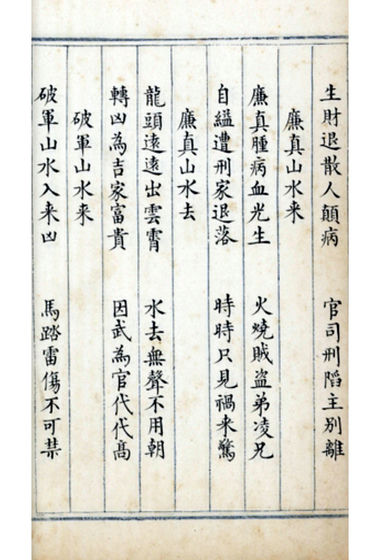 生財退散人顛病　官司刑䧟主別離
廉真山水来
廉真腫病血光生　火燒賊盗弟凌兄
自縊遭刑家退落　時時只見禍来驚
廉真山水去
龍頭遠遠出雲霄　水去無聲不用朝
轉凶為吉家富貴　因武為官代代高
破軍山水来
破軍山水入来凶　馬踏雷傷不可禁